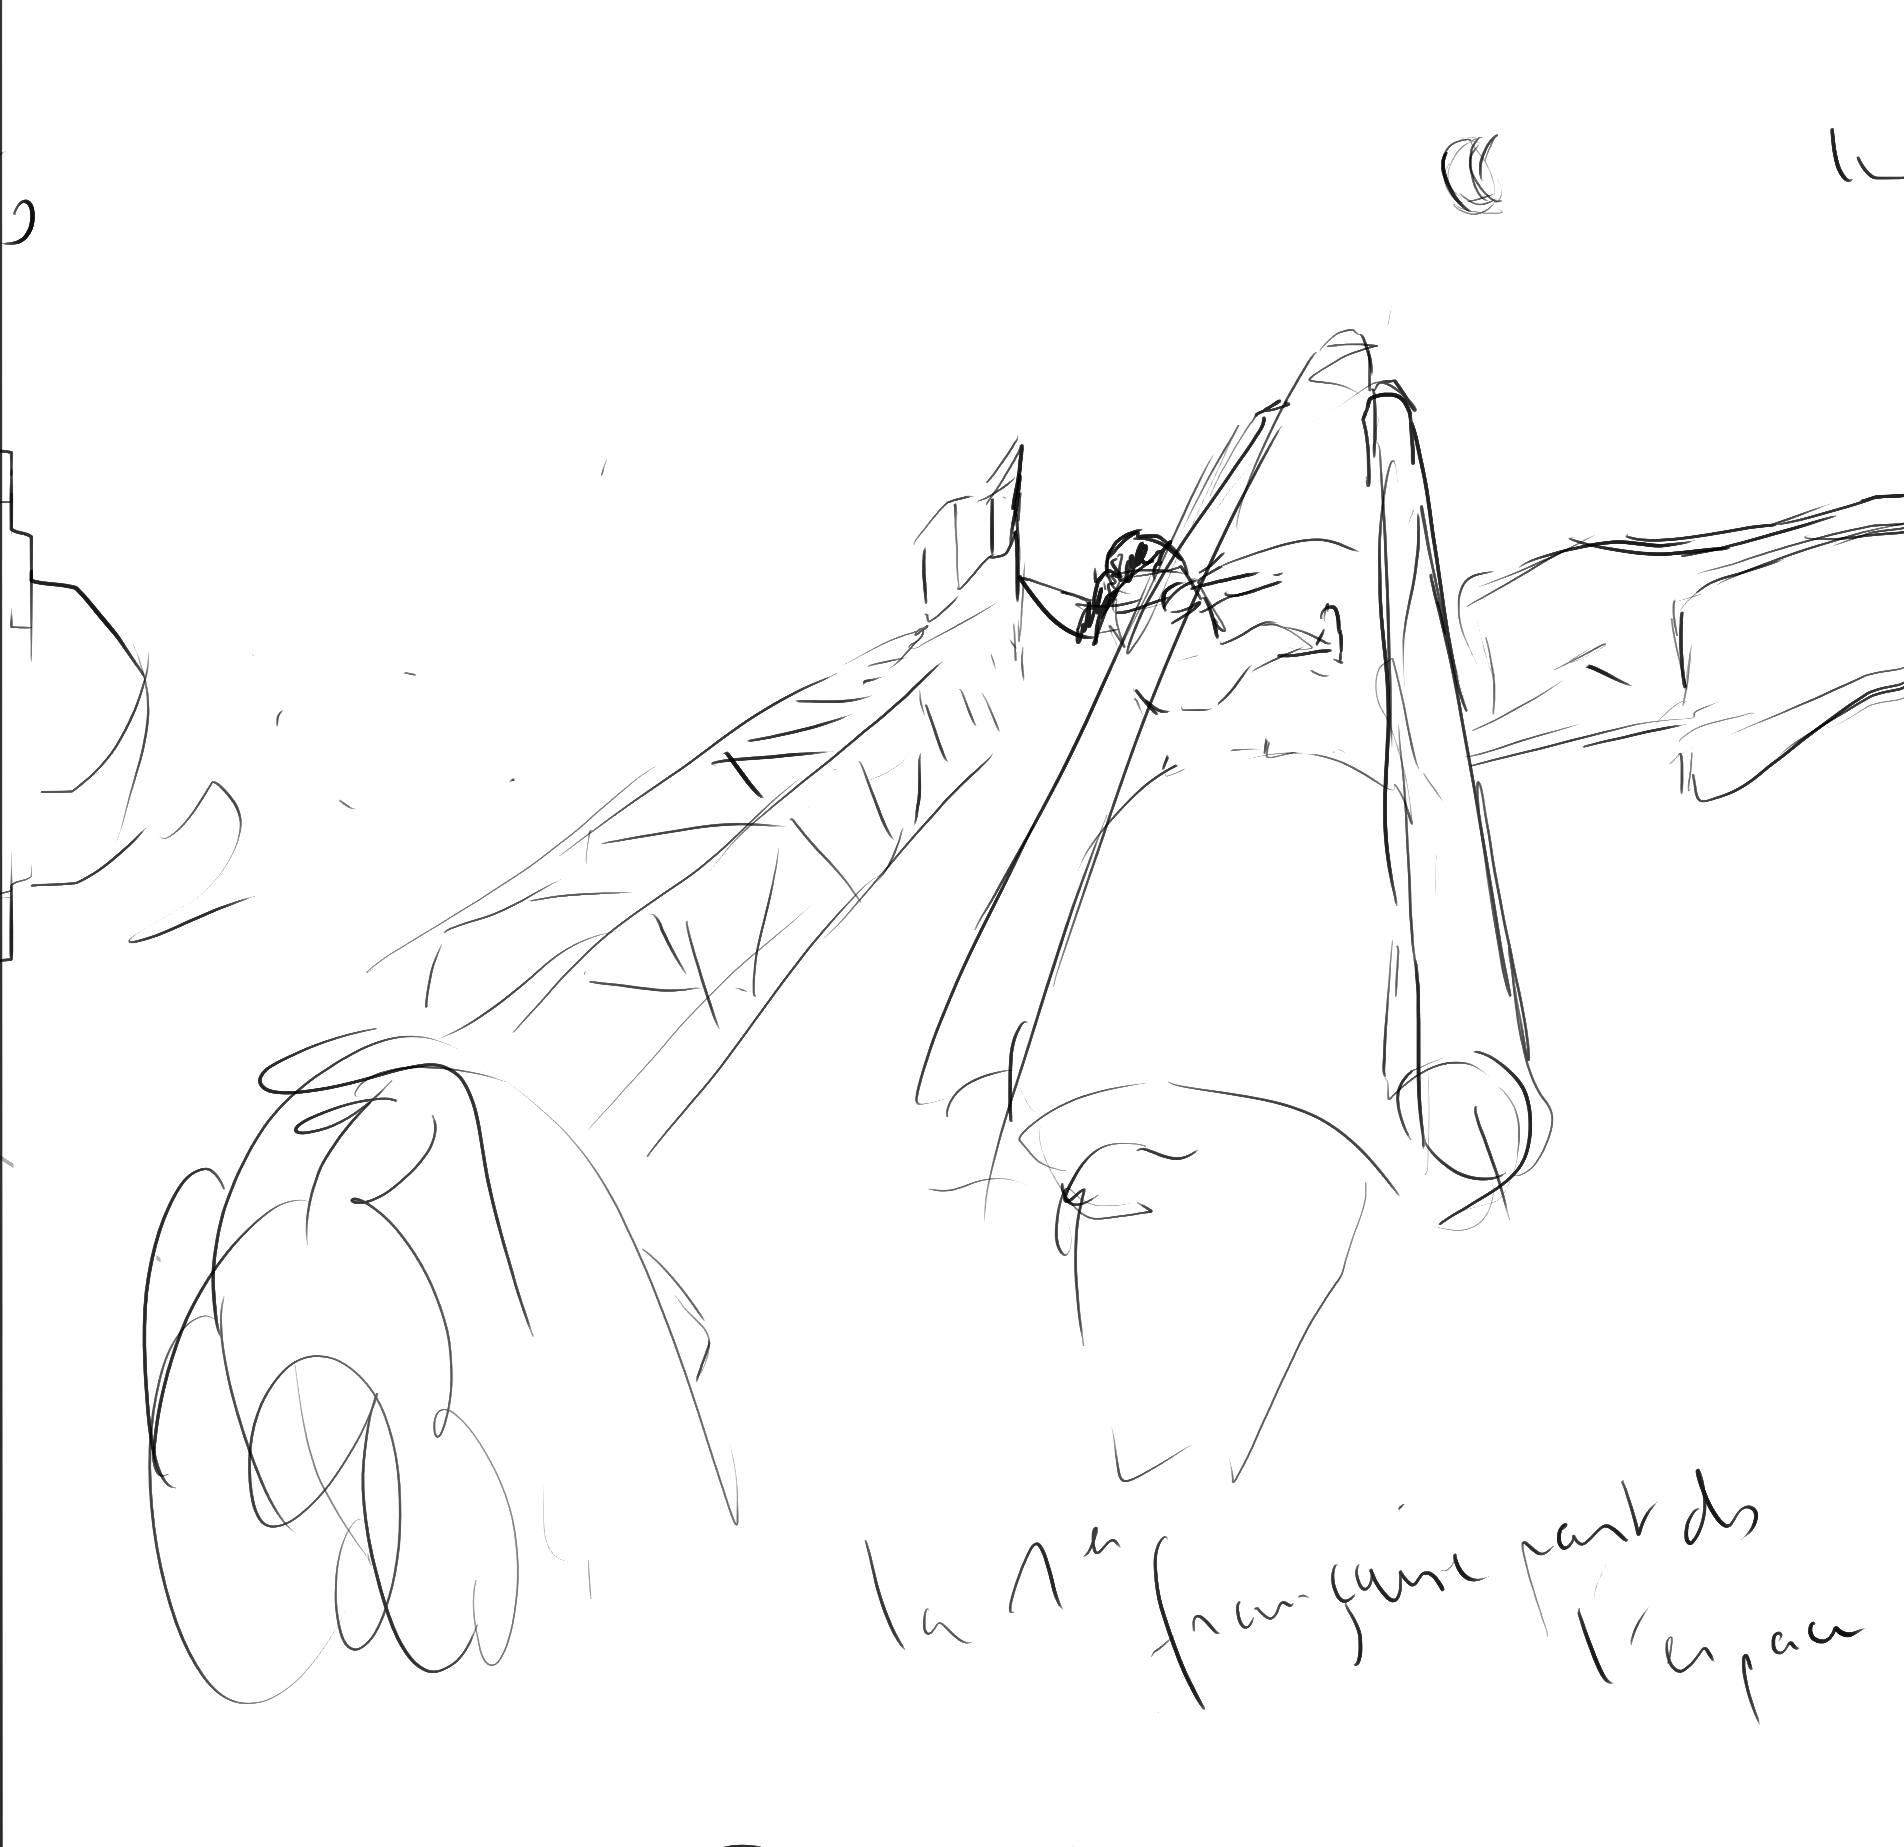 la 1ère française part ds
l'espace